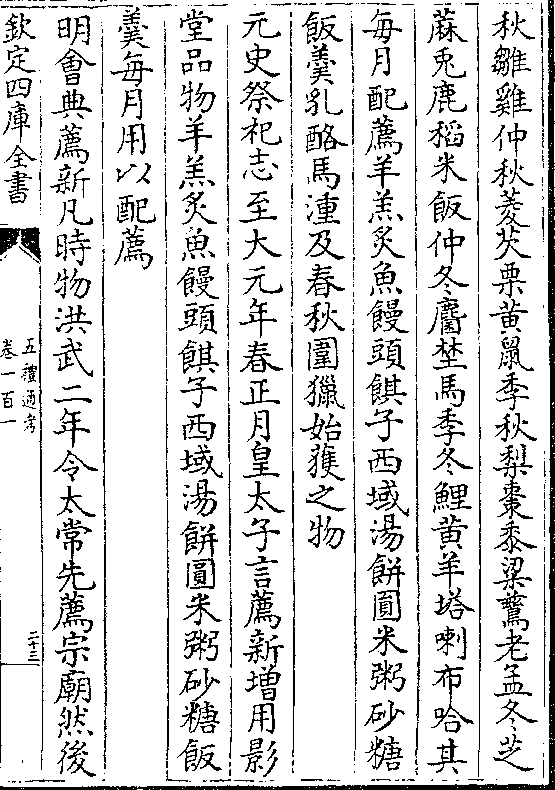 秋雛雞仲秋菱芡栗黄鼠季秋梨棗黍粱鶿老孟冬芝
蔴兎鹿稻米飯仲冬麕埜馬季冬鯉黄羊塔喇布哈其
毎月配薦羊羔炙魚饅頭餻子西域湯餅圓米粥砂糖
飯羮乳酪馬湩及春秋圍獵始獲之物
元史祭祀志至大元年春正月皇太子言薦新增用影
堂品物羊羔炙魚饅頭餻子西域湯餅圓米粥砂糖飯
羮毎月用以配薦
明會典薦新凡時物洪武二年令太常先薦宗廟然後
欽定四庫全書
五禮通考
卷一百一
二十三